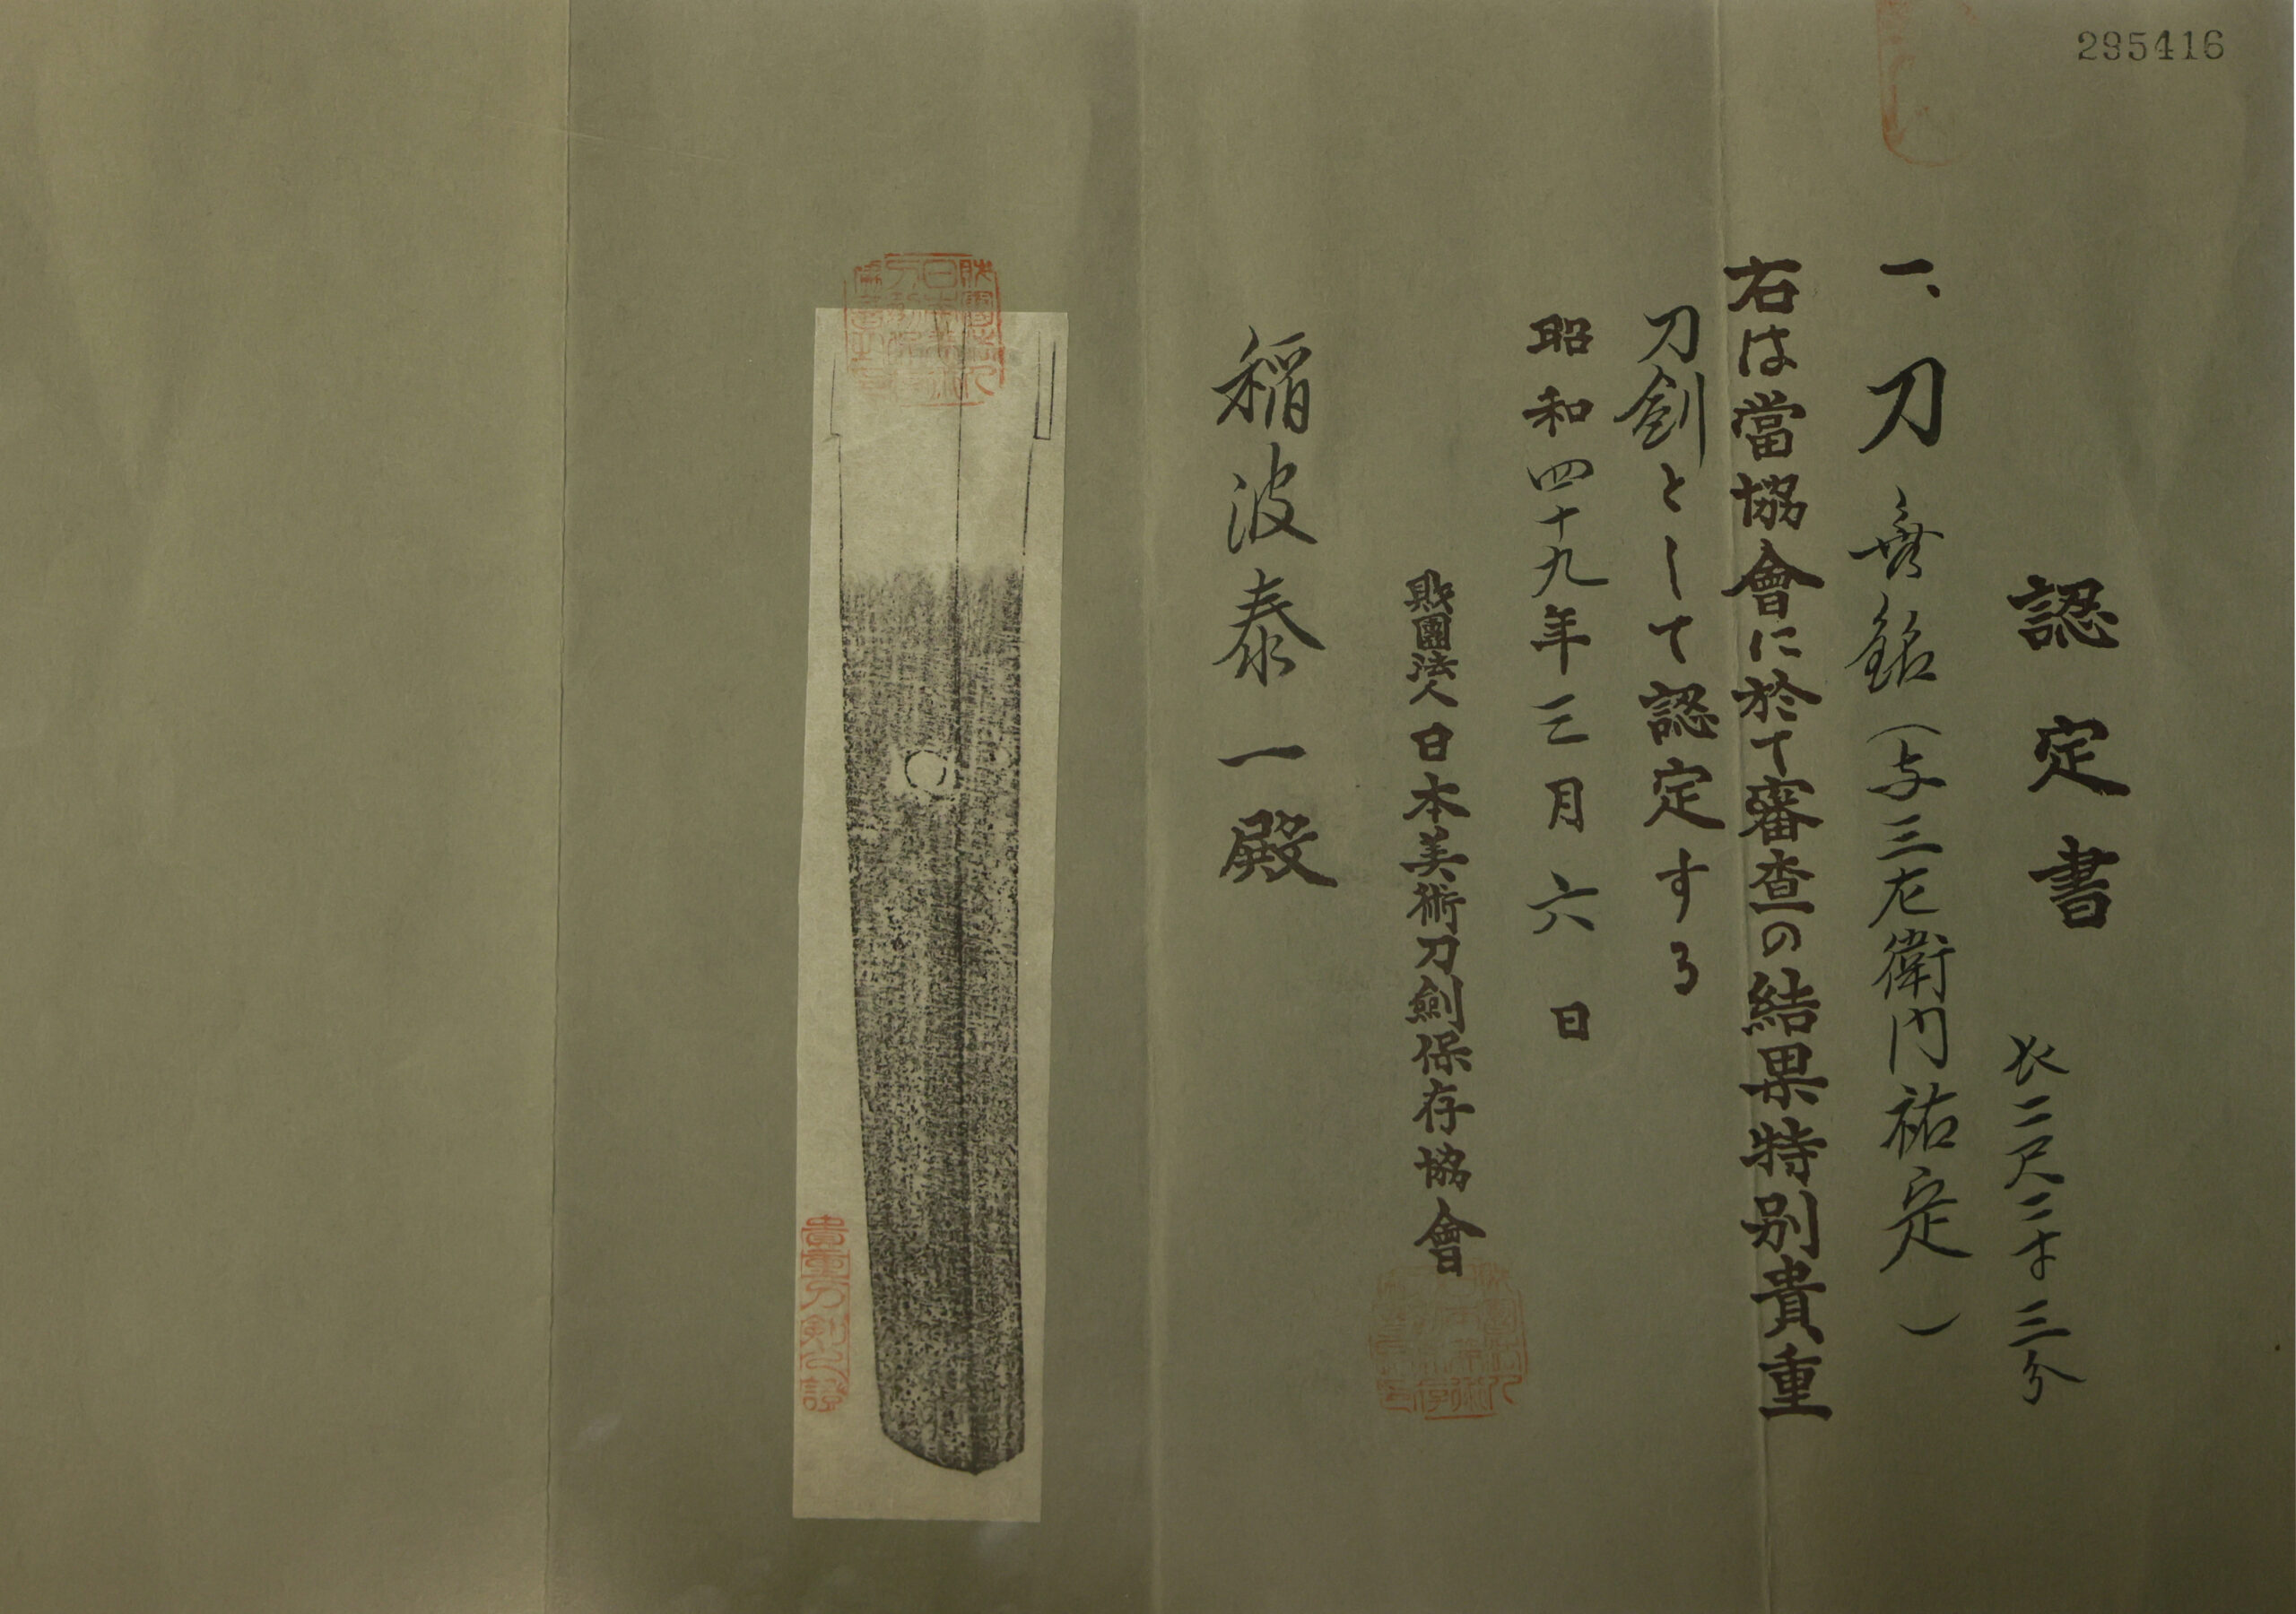 295416
認定書
長二尺二寸三分
一、刀 無銘(与三左衛門祐定)
右は當協會に於て審査の結果特別貴重
刀劍として認定する
昭和四十九年三月六日
財團法人日本美術刀劍保存協會
稲波泰一殿
貴重刀剣之證